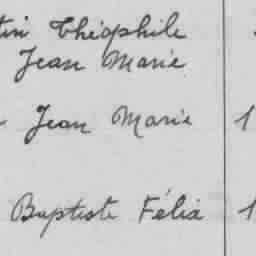 Théophile
Jean Marie
Jean Marie 1
Baptiste Félix 1